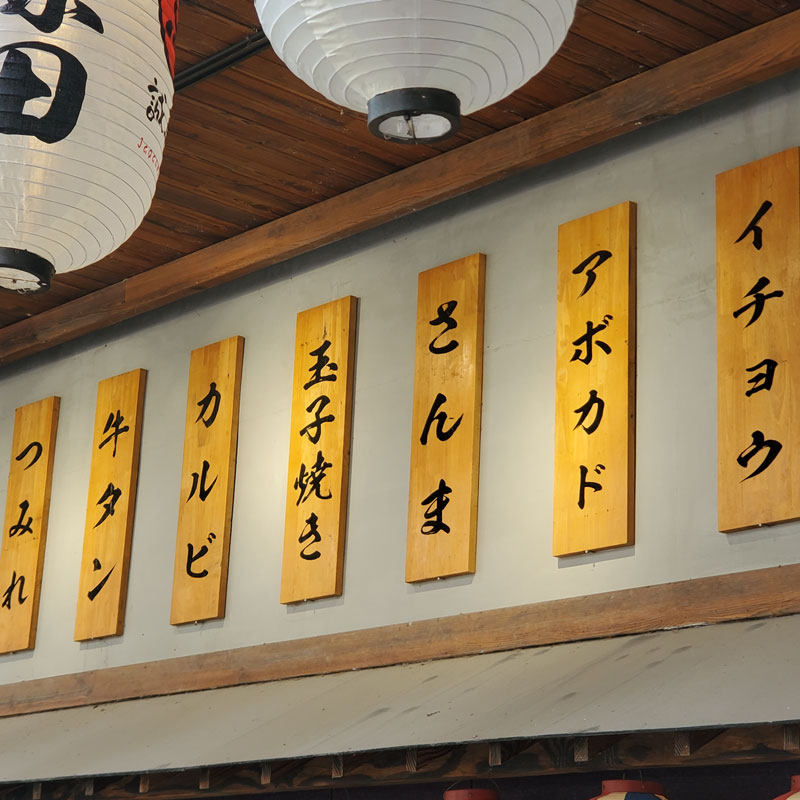 イチヨウ
アボカド
さんま
玉子焼き
カルビ
牛タン
つみれ
田
誠